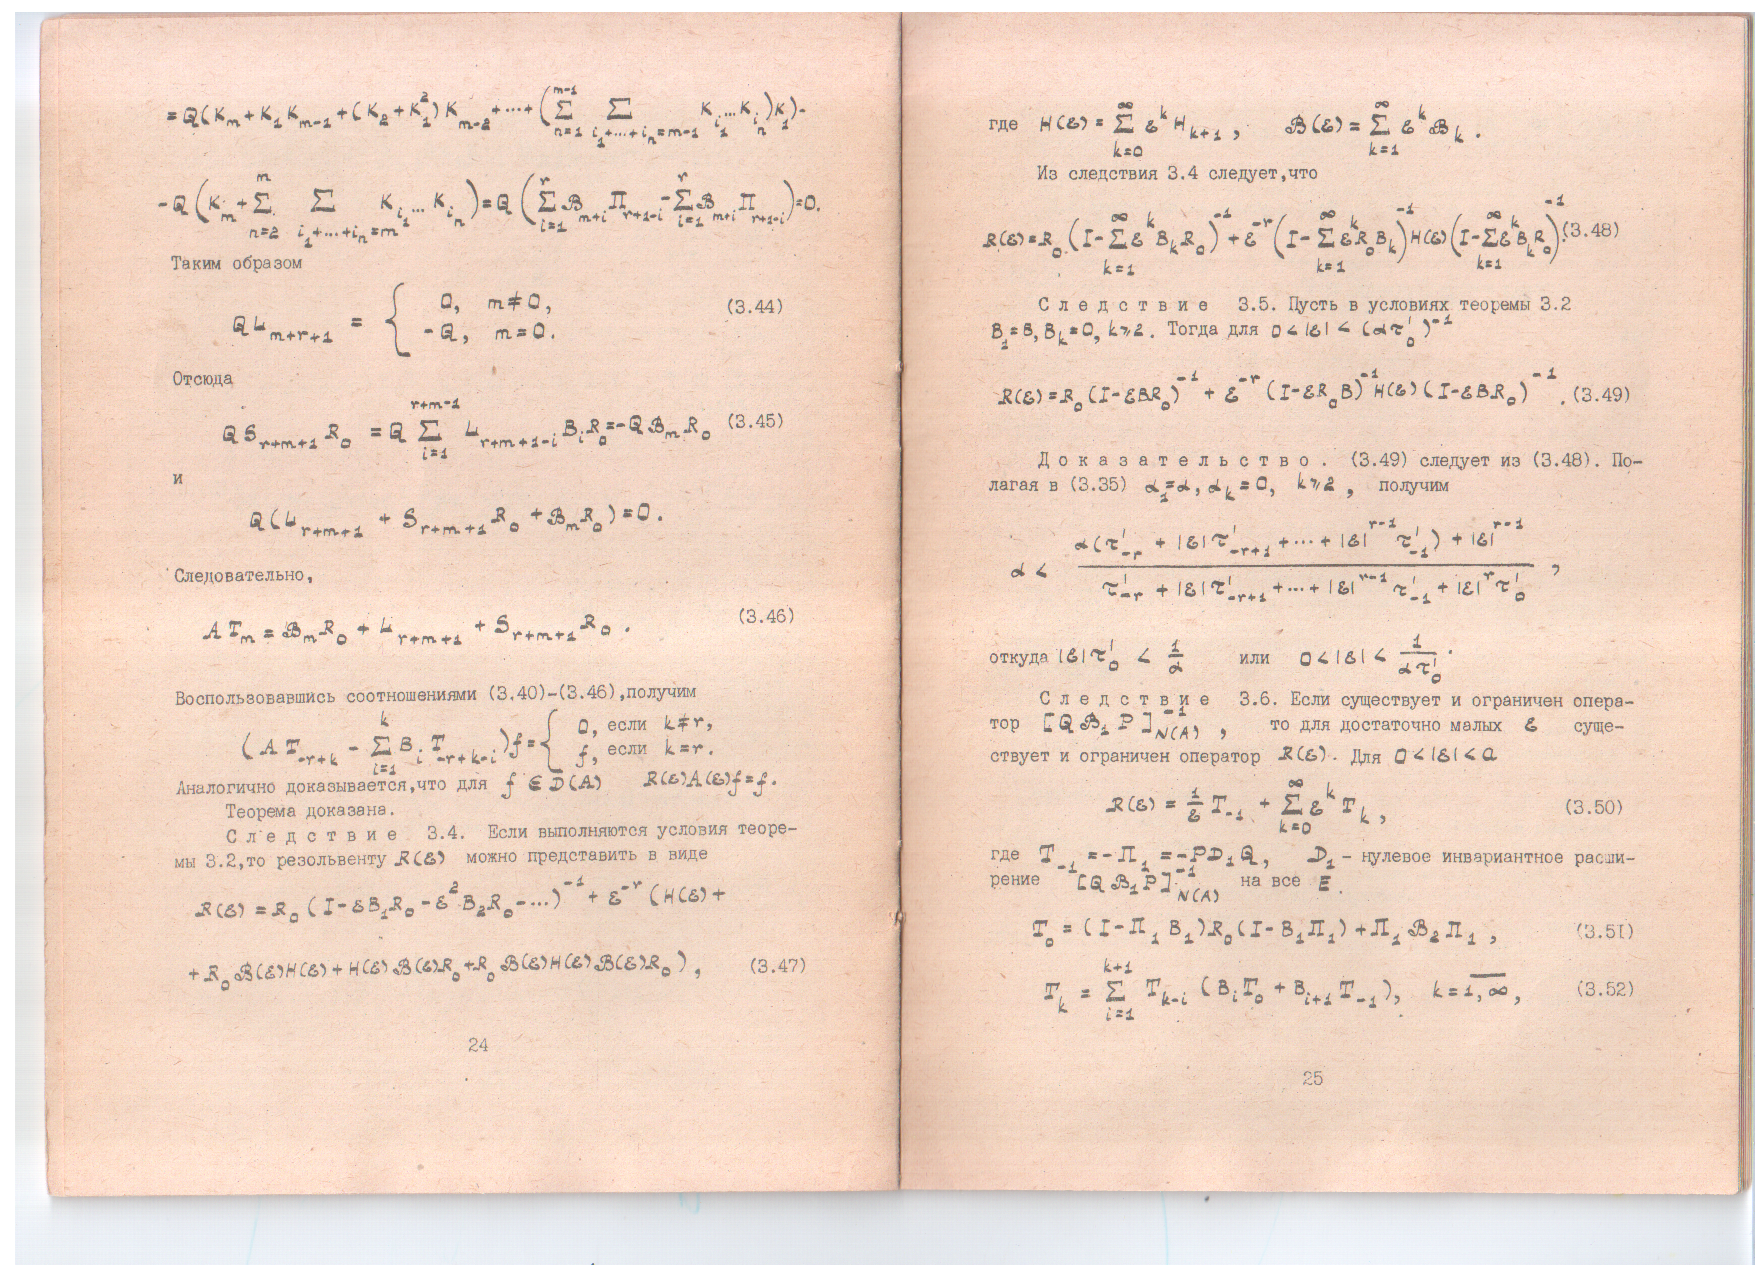 = Q(K_m + K_1 K_{m-1} + (K_2 + K_1^2) K_{m-2} + ... + (∑_{n=1}^{m-1} ∑_{i_1+...+i_n=m-1} K_{i_1}...K_{i_n}) K_1) -
- Q (K_m + ∑_{n=2}^{m} ∑_{i_1+...+i_n=m} K_{i_1}...K_{i_n}) = Q (∑_{i=1}^{r} ℬ_{m+i} Π_{r+1-i} - ∑_{i=1}^{r} ℬ_{m+i} Π_{r+1-i}) = 0.
Таким образом
Q L_{m+r+1} = { 0, m ≠ 0, -Q, m = 0. (3.44)
Отсюда
Q S_{r+m+1} R_0 = Q ∑_{i=1}^{r+m-1} L_{r+m+1-i} B_i R_0 = -Q ℬ_m R_0 (3.45)
и
Q(L_{r+m+1} + S_{r+m+1} R_0 + ℬ_m R_0) = 0.
Следовательно,
A T_m = ℬ_m R_0 + L_{r+m+1} + S_{r+m+1} R_0 . (3.46)
Воспользовавшись соотношениями (3.40)-(3.46),получим
(A T_{-r+k} - ∑_{i=1}^{k} B_i T_{-r+k-i}) f = { 0, если k ≠ r, f, если k = r.
Аналогично доказывается,что для f ∈ D(A) R(ε)A(ε)f = f.
Теорема доказана.
Следствие 3.4. Если выполняются условия теоре-
мы 3.2,то резольвенту R(ε) можно представить в виде
R(ε) = R_0 (I - εB_1R_0 - ε^2 B_2R_0 - ...)^{-1} + ε^{-r} (H(ε) +
+ R_0 ℬ(ε)H(ε) + H(ε) ℬ(ε)R_0 + R_0 ℬ(ε)H(ε)ℬ(ε)R_0 ) , (3.47)
24
где H(ε) = ∑_{k=0}^{∞} ε^k H_{k+1} , ℬ(ε) = ∑_{k=1}^{∞} ε^k ℬ_k .
Из следствия 3.4 следует,что
R(ε) = R_0 (I - ∑_{k=1}^{∞} ε^k B_k R_0)^{-1} + ε^{-r} (I - ∑_{k=1}^{∞} ε^k R_0 B_k)^{-1} H(ε) (I - ∑_{k=1}^{∞} ε^k B_k R_0)^{-1}. (3.48)
Следствие 3.5. Пусть в условиях теоремы 3.2
B_1 = B, B_k = 0, k ⩾ 2. Тогда для 0 < |ε| < (α τ'_0)^{-1}
R(ε) = R_0 (I - εBR_0)^{-1} + ε^{-r} (I - εR_0B)^{-1} H(ε) (I - εBR_0)^{-1} . (3.49)
Доказательство. (3.49) следует из (3.48). По-
лагая в (3.35) α_1 = α, α_k = 0, k ⩾ 2 , получим
α < \frac{α(τ'_{-r} + |ε| τ'_{-r+1} + ... + |ε|^{r-1} τ'_{-1}) + |ε|^{r-1}}{τ'_{-r} + |ε| τ'_{-r+1} + ... + |ε|^{r-1} τ'_{-1} + |ε|^r τ'_0} ,
откуда |ε| τ'_0 < \frac{1}{α} или 0 < |ε| < \frac{1}{α τ'_0} .
Следствие 3.6. Если существует и ограничен опера-
тор [Q ℬ_1 P]^{-1}_{N(A)} , то для достаточно малых ε суще-
ствует и ограничен оператор R(ε). Для 0 < |ε| < a
R(ε) = \frac{1}{ε} T_{-1} + ∑_{k=0}^{∞} ε^k T_k , (3.50)
где T_{-1} = -Π_1 = -PD_1Q, D_1 - нулевое инвариантное расши-
рение [Q ℬ_1 P]^{-1}_{N(A)} на все E .
T_0 = (I - Π_1 B_1)R_0(I - B_1Π_1) + Π_1 ℬ_2 Π_1 , (3.51)
T_k = ∑_{i=1}^{k+1} T_{k-i} (B_i T_0 + B_{i+1} T_{-1}), k = \overline{1,∞}, (3.52)
25